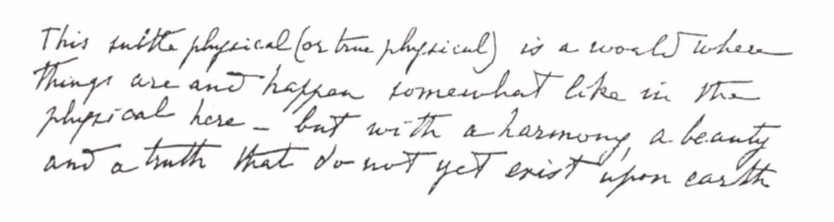 This subtle physical (or true physical) is a world where
things are and happen somewhat like in the
physical here – but with a harmony, a beauty
and a truth that do not yet exist upon earth